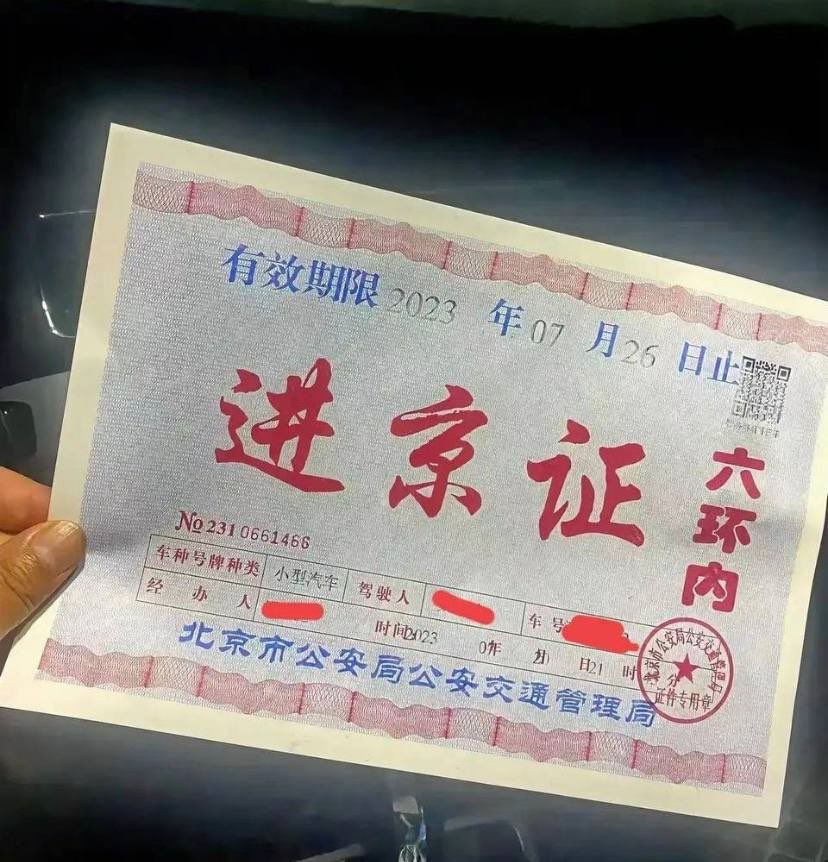 有效期限 2023 年 07 月 26 日止
进京证
六环内
No 231 0661466
车种号牌种类 小型汽车 驾驶人 车号
经办人 时间2023 07年 20月 日21 时 分
北京市公安局公安交通管理局
北京市公安局公安交通管理局
证件专用章